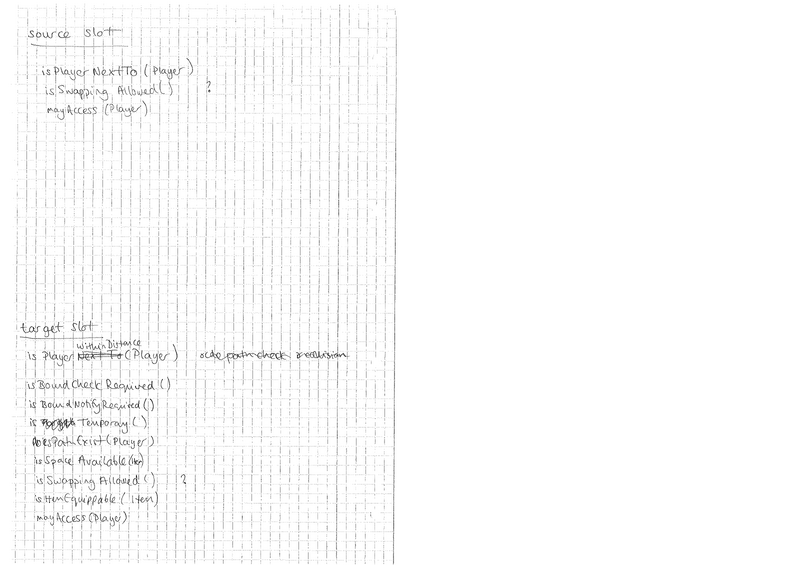 source slot
isPlayerNextTo(Player)
isSwappingAllowed() ?
mayAccess(Player)
target slot
WithinDistance
isPlayer Next To (Player)
isBoundCheckRequired()
isBoundNotifyRequired()
is Temporary()
DoesPathExist(Player)
isSpaceAvailable(Item)
isSwappingAllowed() ?
isItemEquippable(Item)
mayAccess(Player)